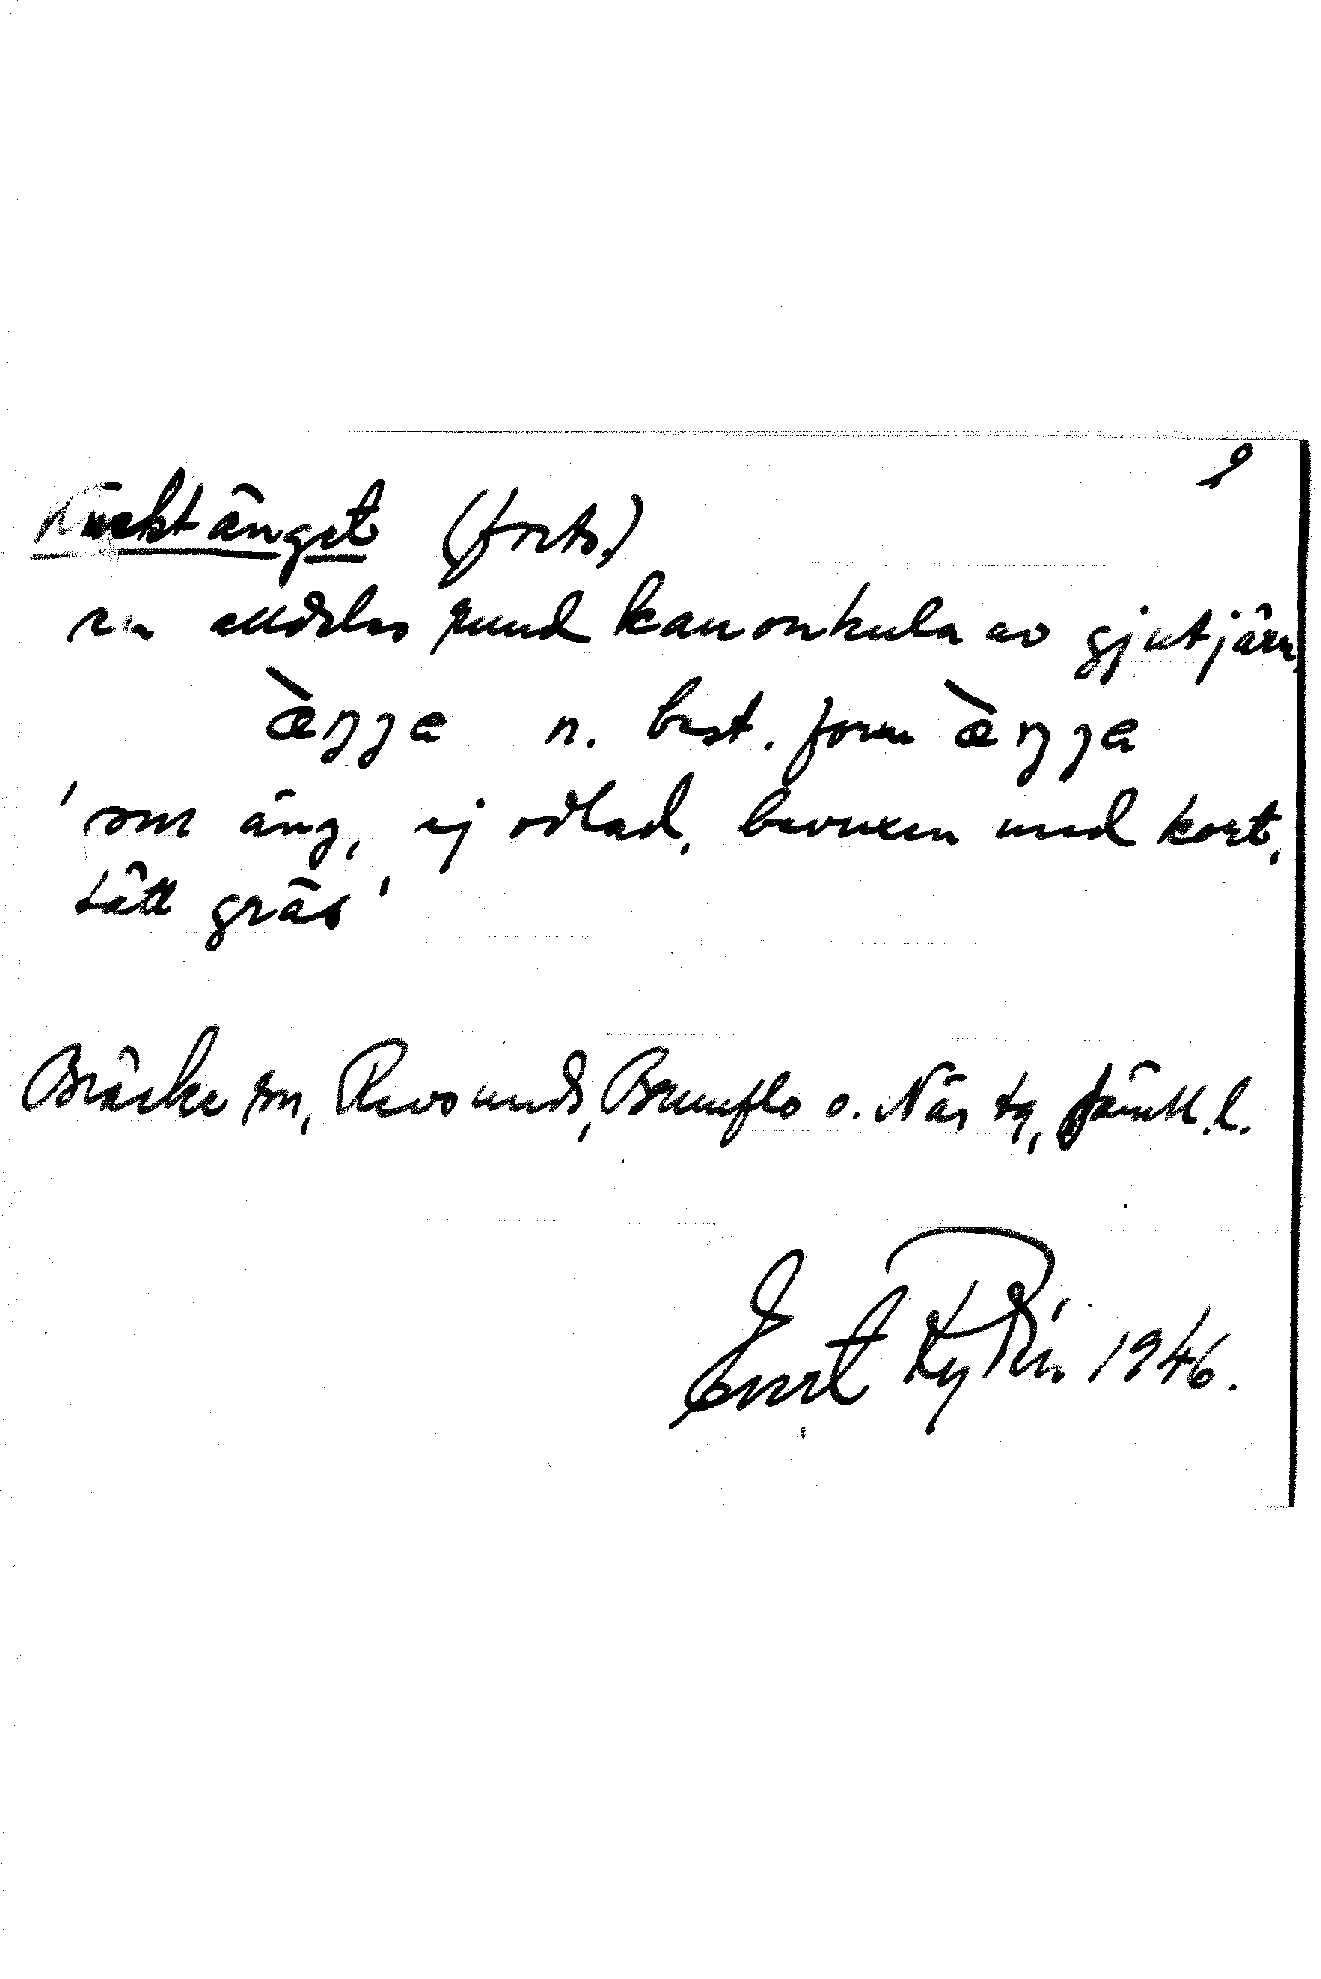 2
Knektänget (forts.)
en alldeles rund kanonkula av gjutjärn.
æ̀ŋɡa n. best. form æ̀ŋɡa
'som äng, ej odlad, bevuxen med kort,
tätt gräs'
Bräcke sn, Revsunds, Brunflo o. Näs tg, Jämtl. l.
Evert Rydin 1946.